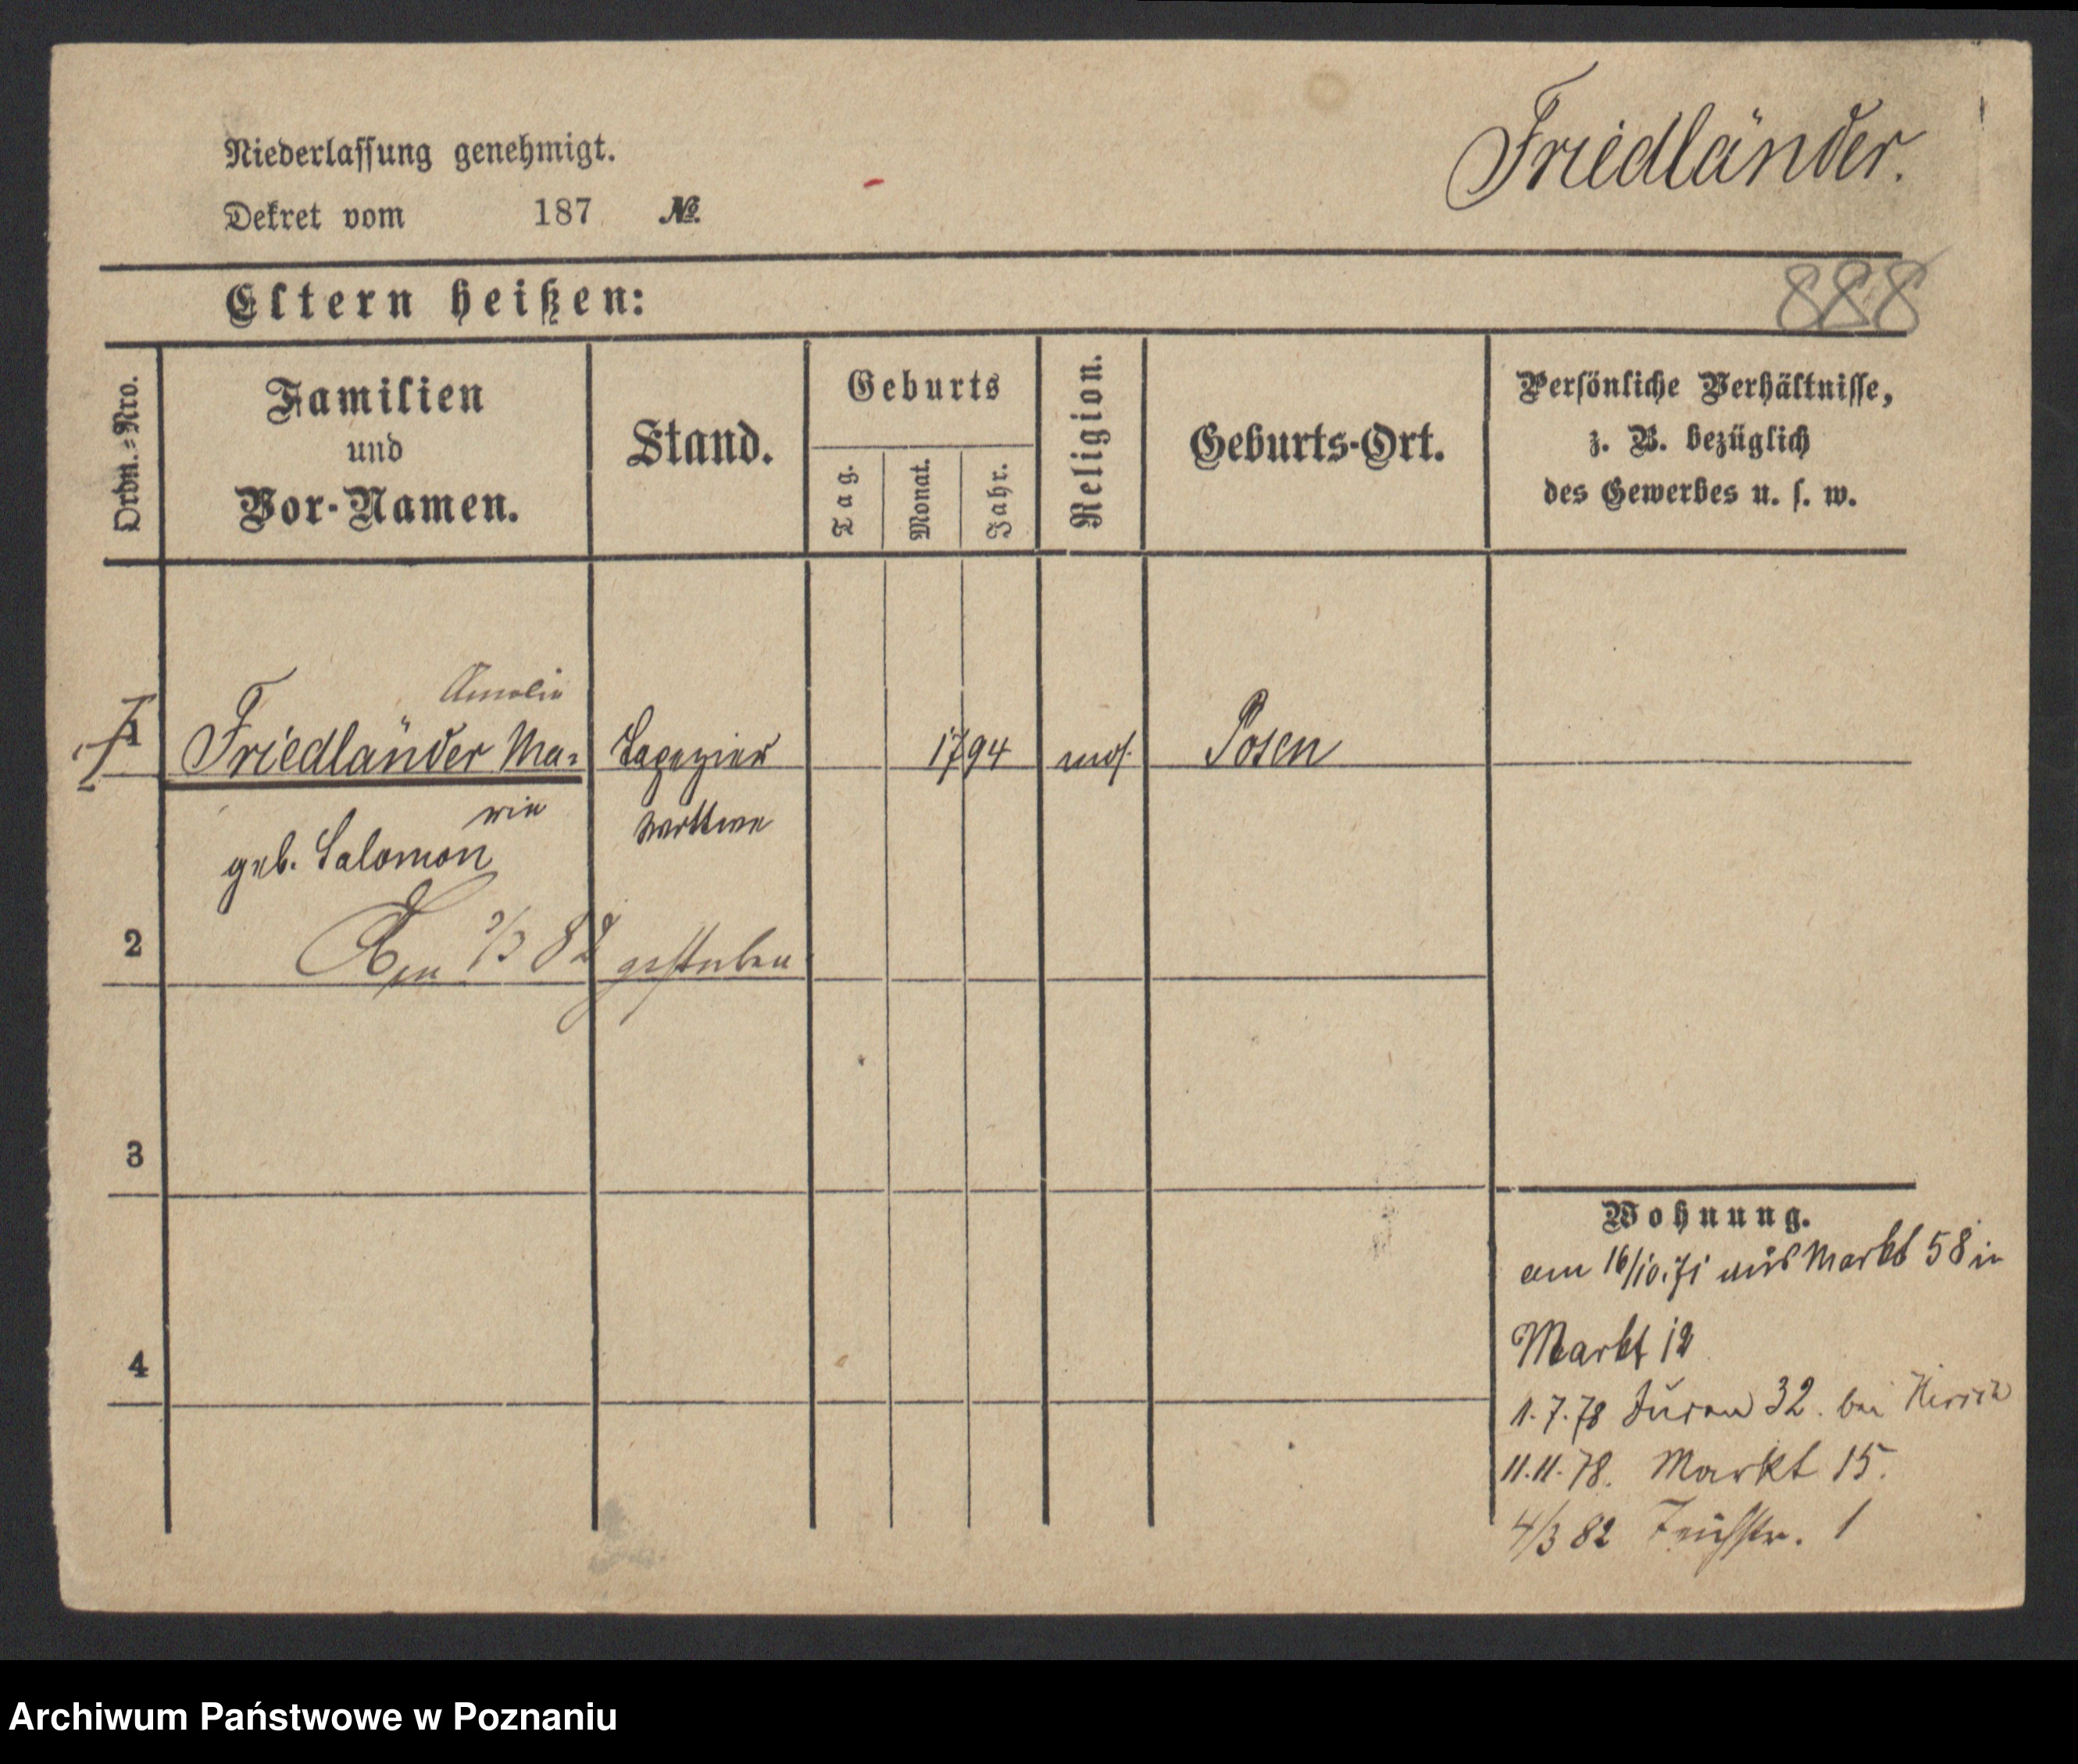 Friedländer.
Niederlassung genehmigt.
Dekret vom 187 №
888
Eltern heißen:
Ordn.-Nro.
Familien
und
Vor-Namen.
Stand.
Geburts
Tag.
Monat.
Jahr.
Religion.
Geburts-Ort.
Persönliche Verhältnisse,
z. B. bezüglich
des Gewerbes u. s. w.
Amalie
1 Friedländer Ma- 1794 mos. Posen
rie Wittwe
geb. Salomon
2 82 gestorben
3
4
Wohnung.
am 16/10.71 aus Markt 58 in
Markt 12
1.7.78 Juden 32. bei Hirsch
11.11.78. Markt 15.
4/3 82 1
Archiwum Państwowe w Poznaniu